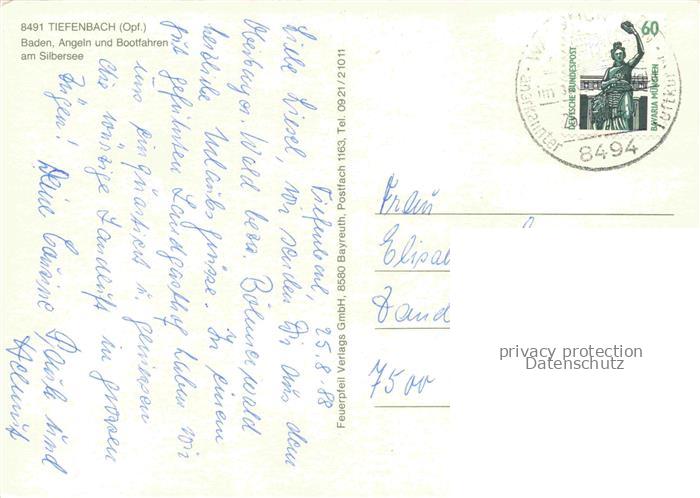 8491 TIEFENBACH (Opf.)
Baden, Angeln und Bootfahren
am Silbersee
Tiefenbach, 25.8.88
Liebe Liesel, wir senden Dir aus dem
Oberpfälzer Wald bezw. Böhmerwald
herzliche Urlaubsgrüsse. In einem
gut geführten Landgasthof haben wir
uns einquartiert u. geniessen
die würzige Landluft in grossen
Zügen! Deine Cousine Paula und
Helmut
Feuerpfeil Verlags GmbH, 8580 Bayreuth, Postfach 1163, Tel. 0921/21011
60
DEUTSCHE BUNDESPOST
BAVARIA MÜNCHEN
anerkannter
Luftkurort
8494
Frau
Elisa
7500
privacy protection
Datenschutz